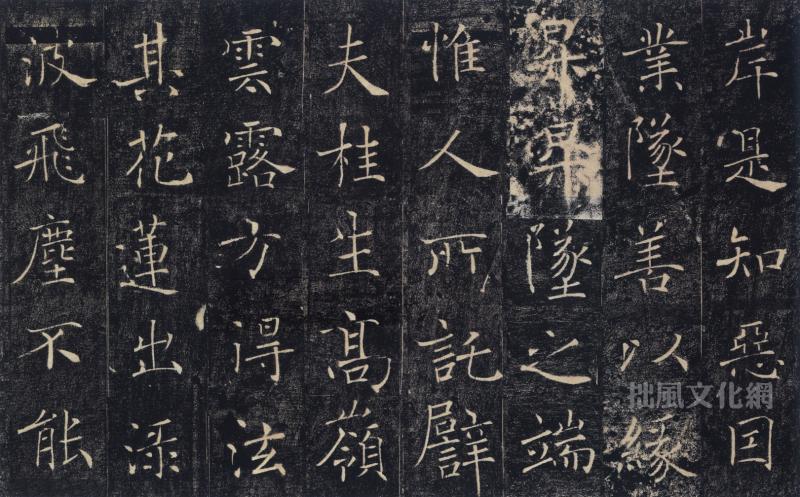 岸是知惡囙
業墜善以緣
昇昇墜之端
惟人所託譬
夫桂生髙嶺
雲露方得泫
其花蓮出淥
波飛塵不能
拙風文化網